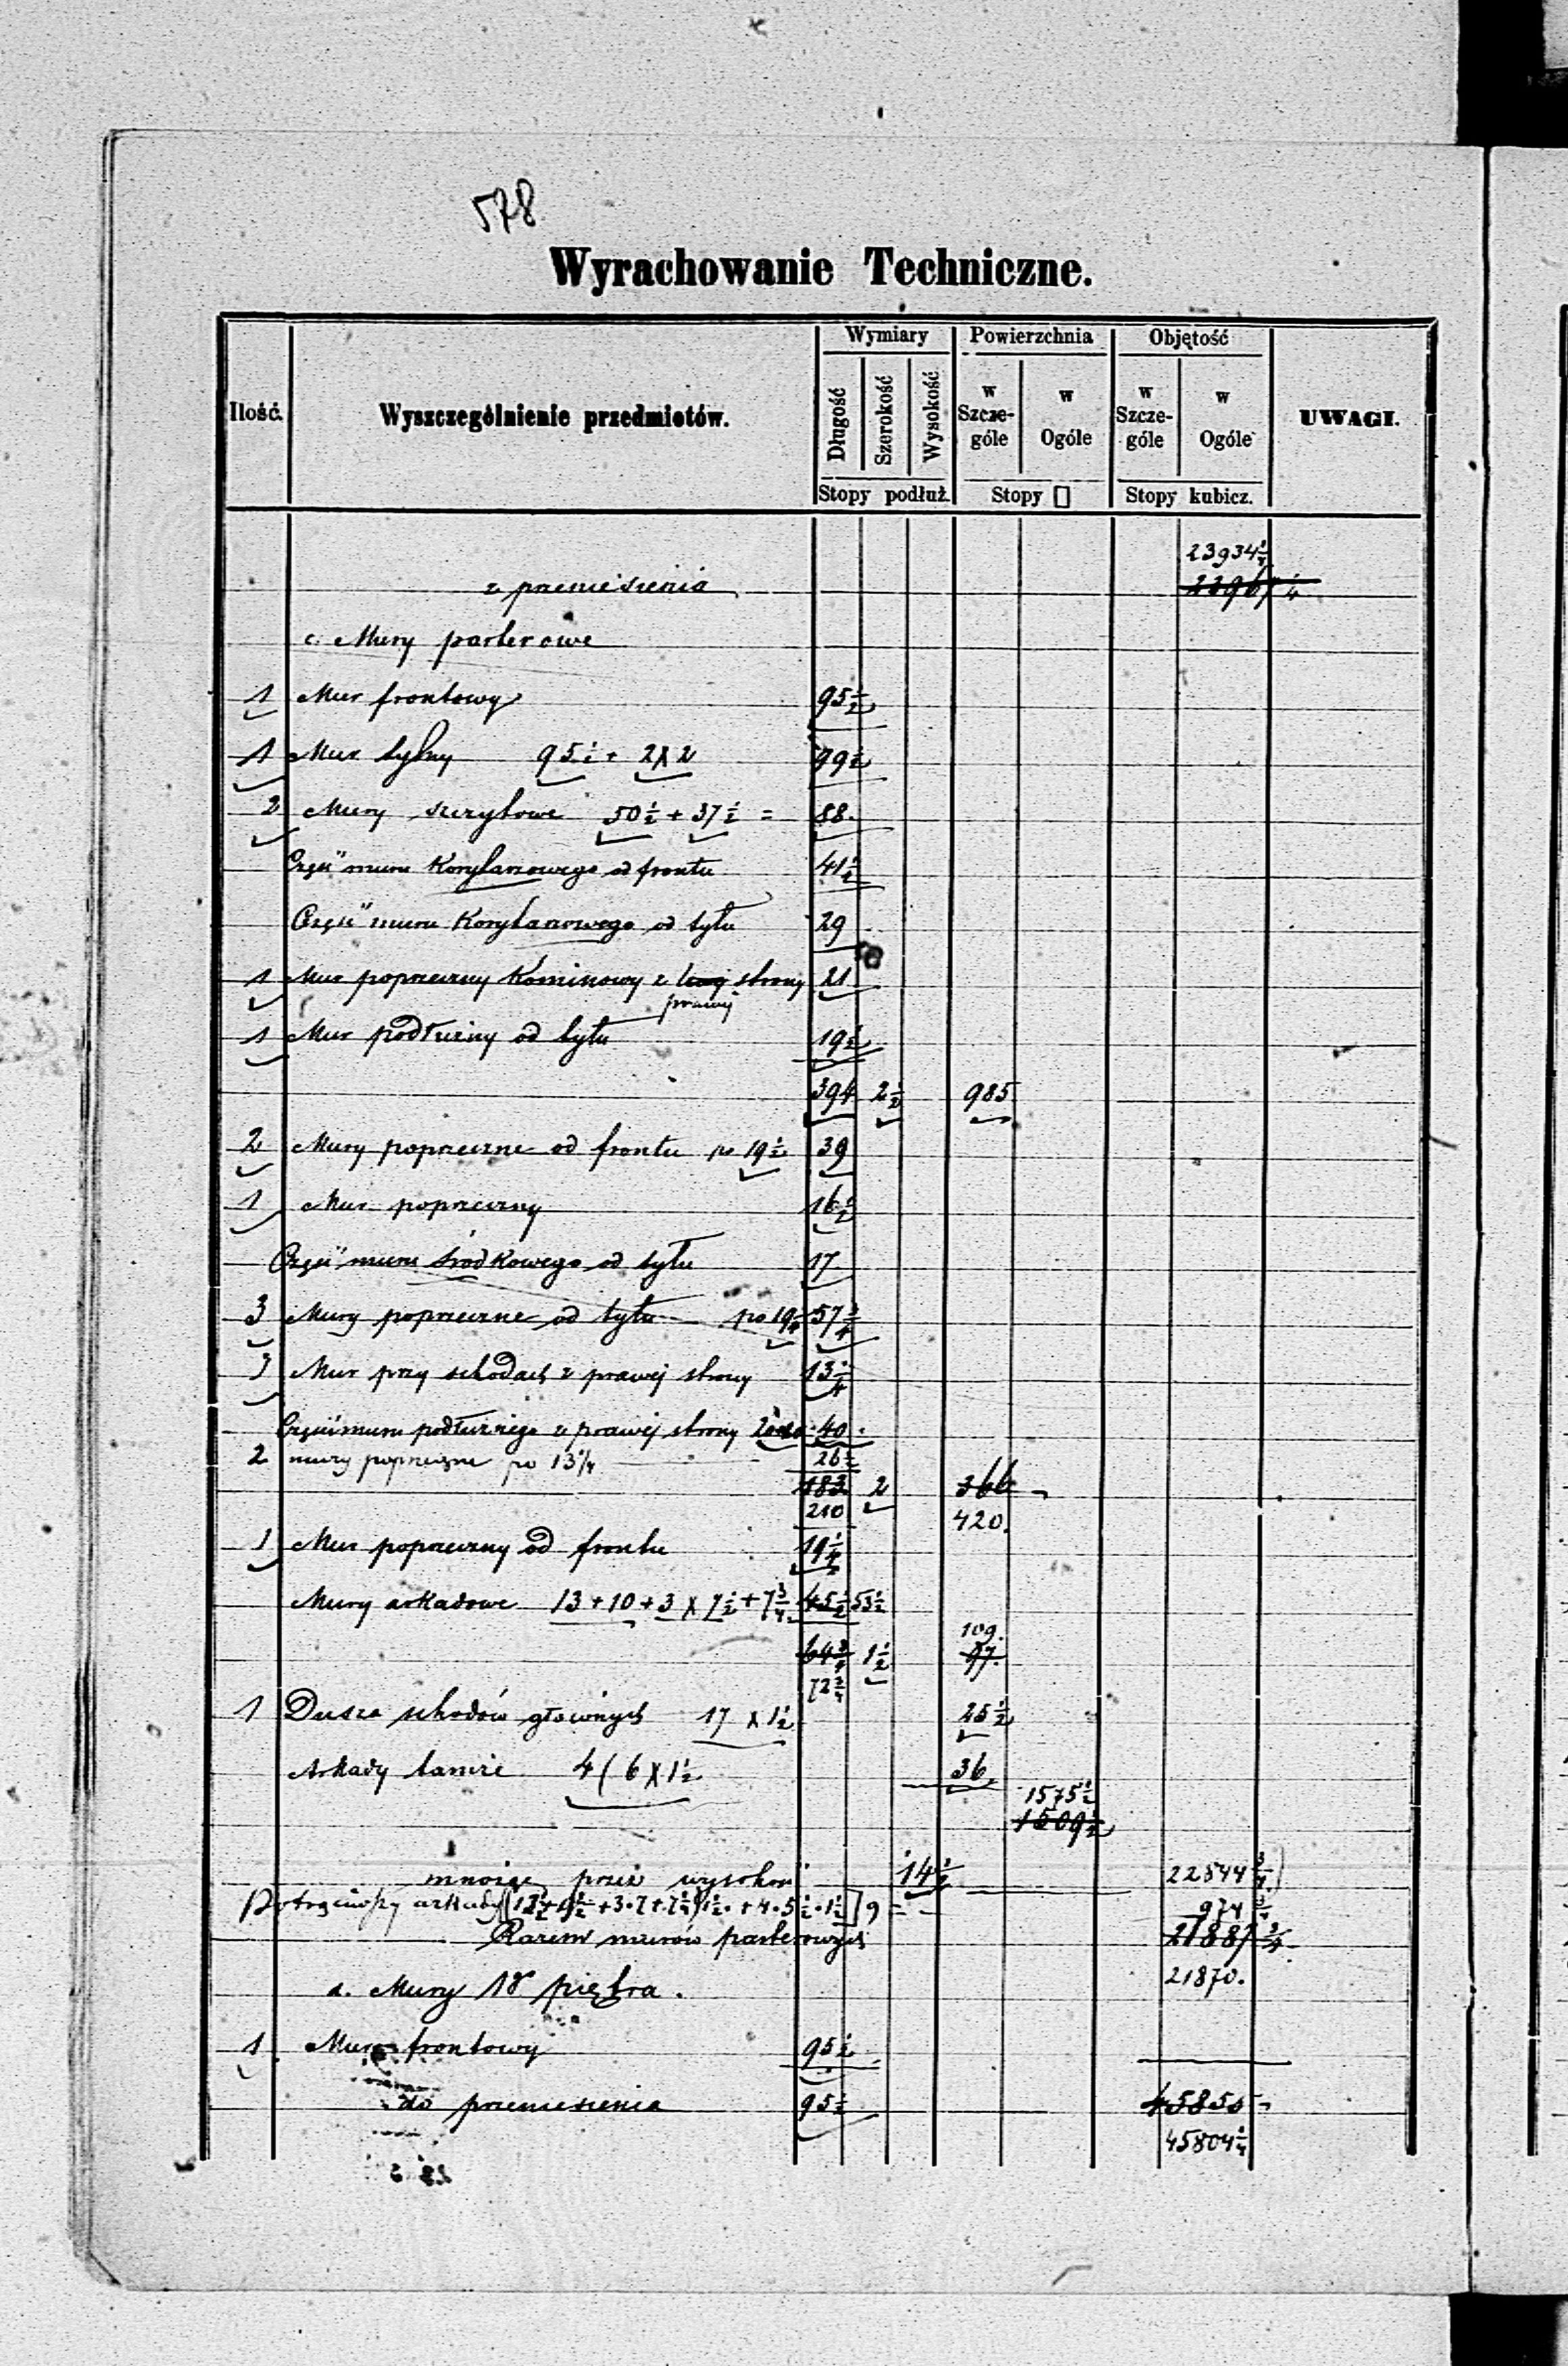 578
Wyrachowanie Techniczne.
Ilość. Wyszczególnienie przedmiotów. Wymiary Powierzchnia Objętość UWAGI.
Długość Szerokość Wysokość w Szcze-góle w Ogóle w Szcze-góle w Ogóle
Stopy podłuż. Stopy □ Stopy kubicz.
23934 1/4
z przeniesienia
c. Mury parterowe
1 Mur frontowy 95 1/2
1 Mur tylny 95 1/2 + 2X2 99 1/2
2 Mury szczytowe 50 1/2 + 37 1/2 = 88.
Część muru Korytarzowego od frontu 41 1/2
Część muru Korytarzowego od tyłu 29
1 Mur poprzeczny Kominowy z lewej strony 21
prawej
1 Mur podłużny od tyłu 19 1/2
394 2 1/2 985
2 Mury poprzeczne od frontu po 19 1/2 39
1 Mur poprzeczny 16 1/2
Część muru środkowego od tyłu 17
3 Mury poprzeczne od tyłu po 19 1/4 57 3/4
1 Mur przy schodach z prawej strony 13 1/4
Część muru podłużnego z prawej strony 40.
2 mury poprzeczne po 13 1/4 26 1/2
183 2 366
210 420.
1 Mur poprzeczny od frontu 19 1/4
Mury arkadowe 13 + 10 + 3 X 7 1/2 + 7 3/4 45 1/2 53 1/2
109.
64 3/4 1 1/2 97.
72 3/4
1 Dusza schodów głównych 17 X 1 1/2 25 1/2
Arkady tamże 4 (6 X 1 1/2 36
1575 1/2
1509 1/2
mnożąc przez wysokość 14 1/2 22844 3/4
arkady + 3·7 + 7 1/4) 1 1/2 · + 4·5 1/2 · 1 1/2] 9 = 974 3/4
Razem murów parterowych 21887 3/4
21870.
d. Mury 1go piętra.
1 Mur frontowy 95 1/2
do przeniesienia 95 1/2 45855
45804 1/4